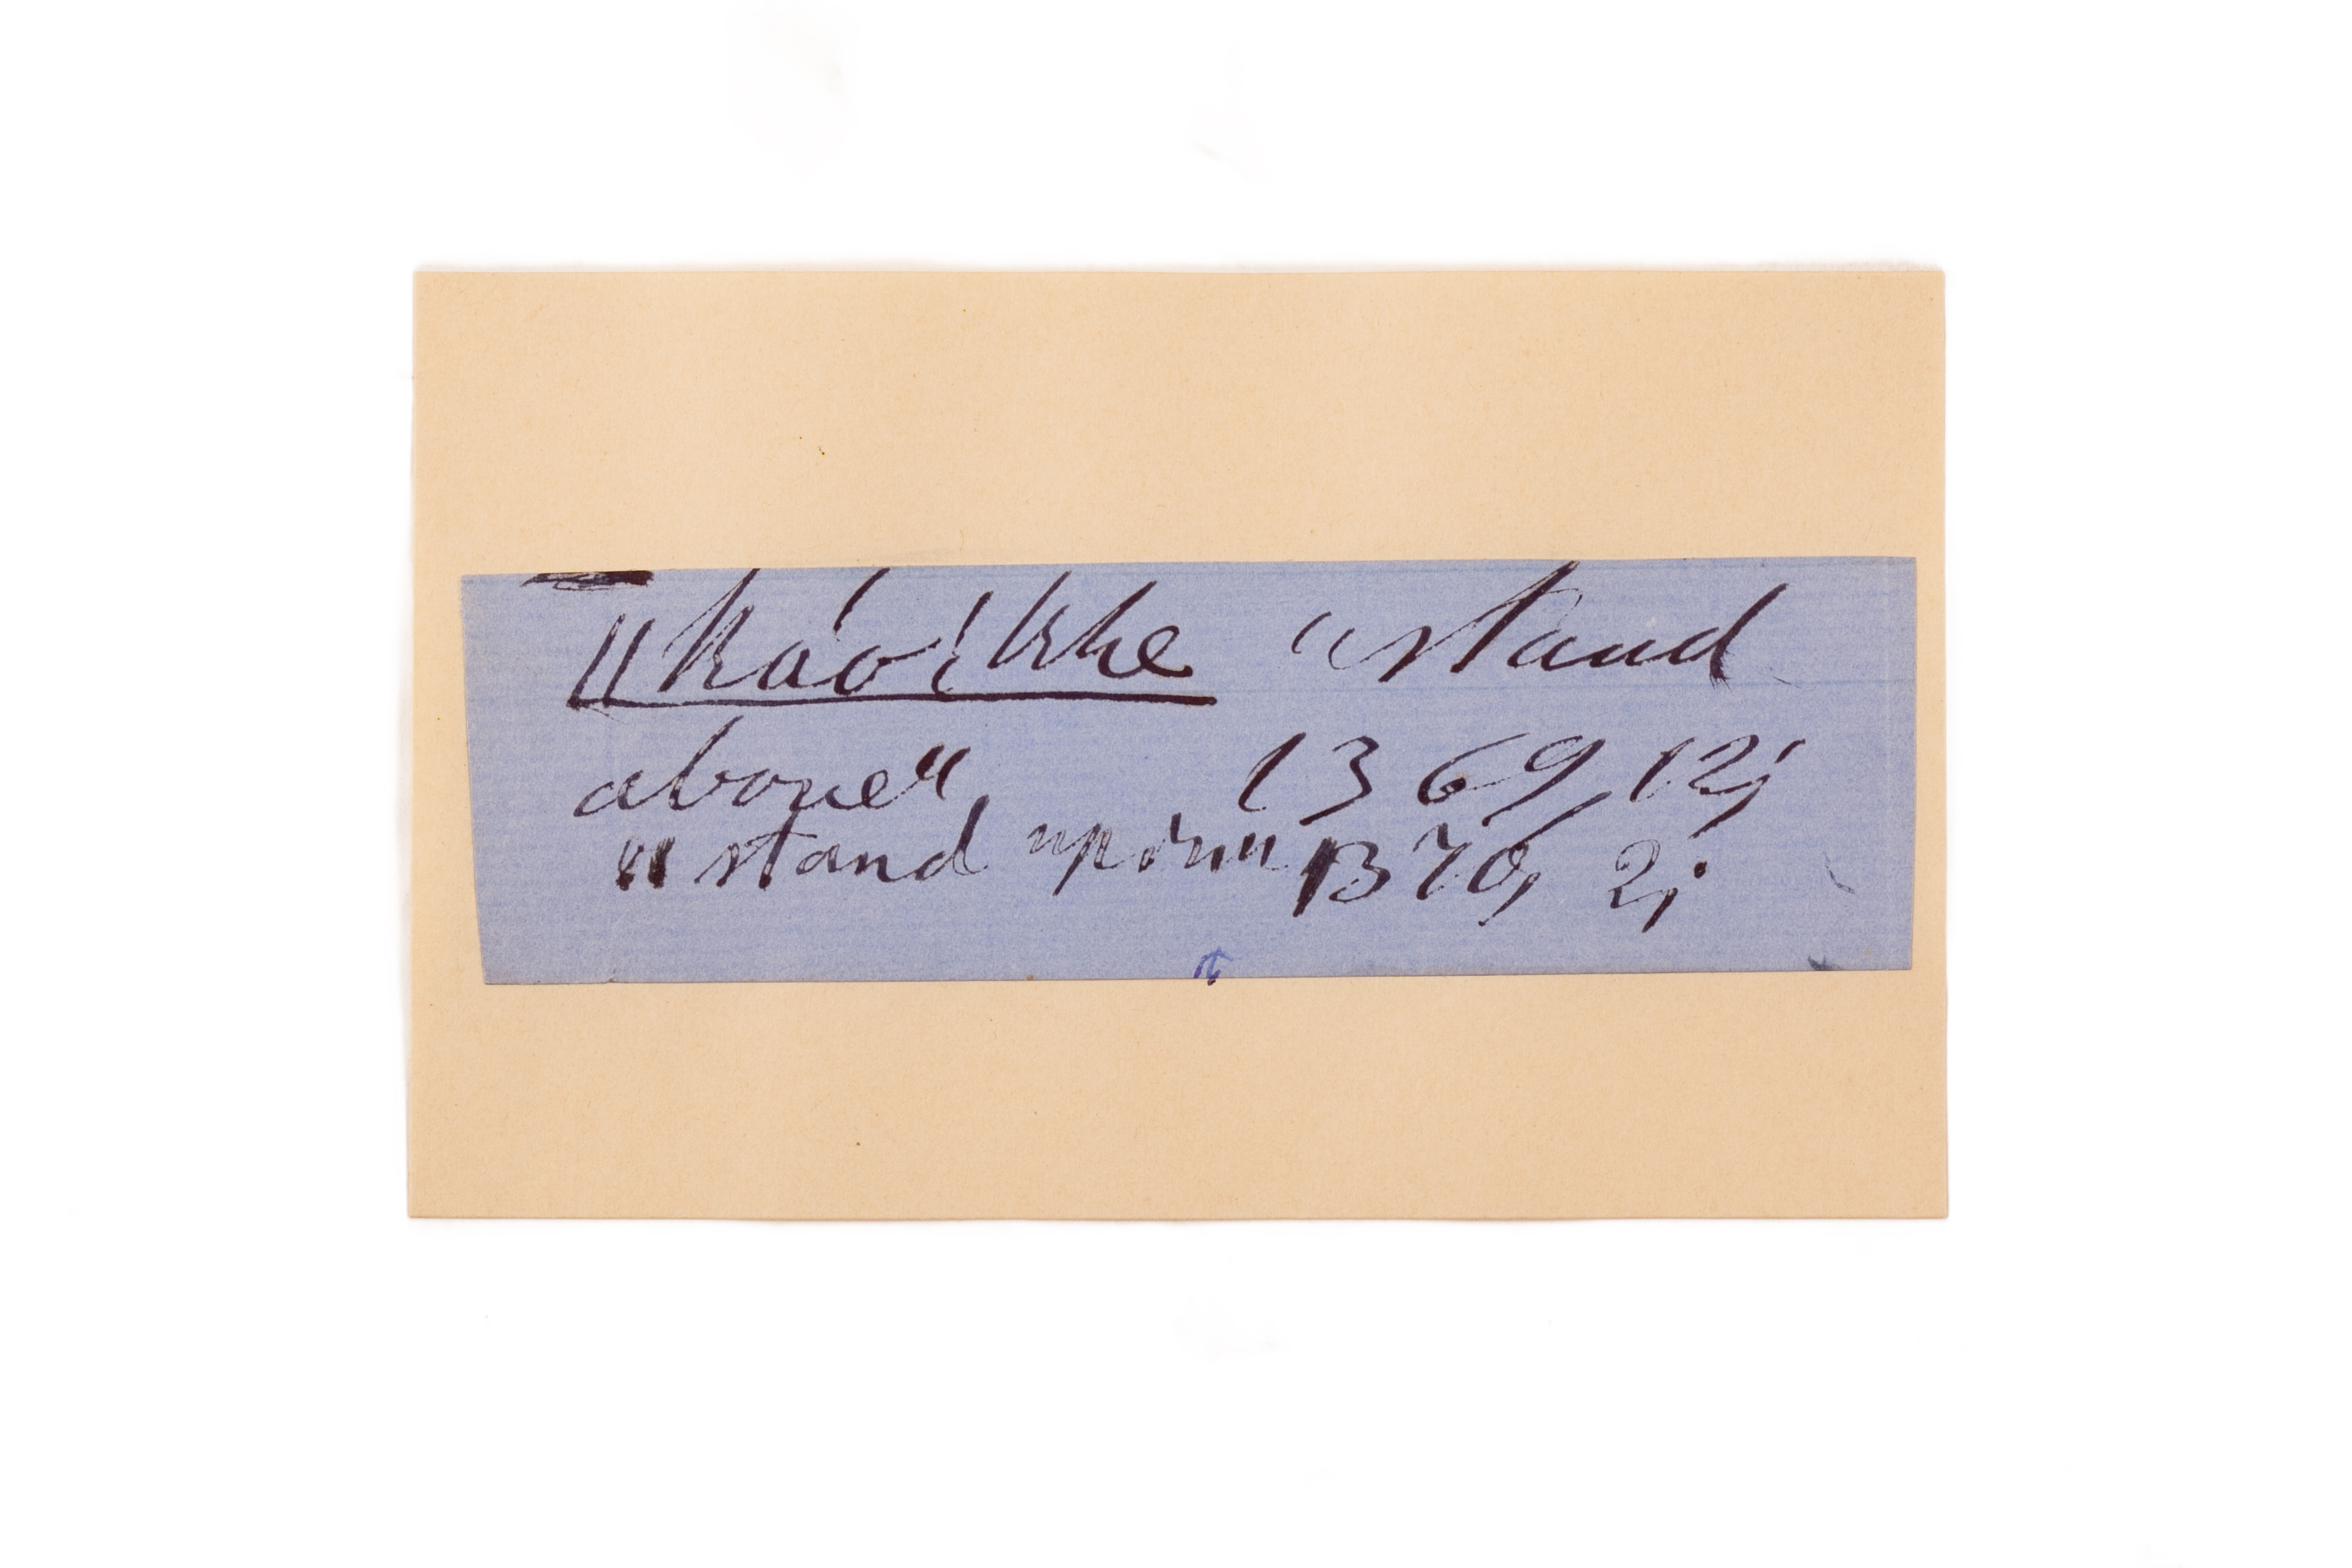 "káo ǃkhe "stand
above" 1369, 12;
"stand upon" 1370, 2;